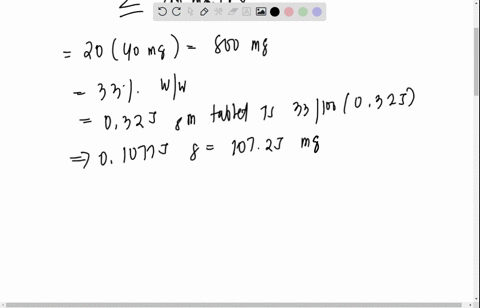 = 20 (40 mg) = 800 mg
= 33%. W/W
= 0.325 gm tablet is 33/100 (0.325)
⇒ 0.10725 g = 107.25 mg